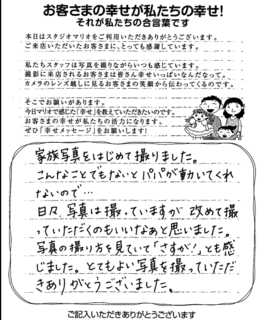 お客さまの幸せが私たちの幸せ!
それが私たちの合言葉です
本日はスタジオマリオをご利用いただきありがとうございます。
ご来店いただいたお客さまに、とっても感謝しています。
私たちスタッフは写真を撮りながらいつも感じています。
撮影に来店されるお客さまは皆さん幸せいっぱいなんだなって。
カメラのレンズ越しに見るお客さまの笑顔から伝わってくるのです。
そこでお願いがあります。
今日マリオで感じた「幸せ」を教えていただきたいのです。
お客さまの幸せが私たちの活力になります。
ぜひ「幸せメッセージ」をお願いします!
家族写真をはじめて撮りました。
こんなことでもないとパパが動いてくれ
ないので…
日々、写真は撮っていますが 改めて撮
っていただくのもいいなあと思いました。
写真の撮り方を見ていて「さすが!」とも感
じました。とてもよい写真を撮っていただ
きありがとうございました。
ご記入いただきありがとうございます